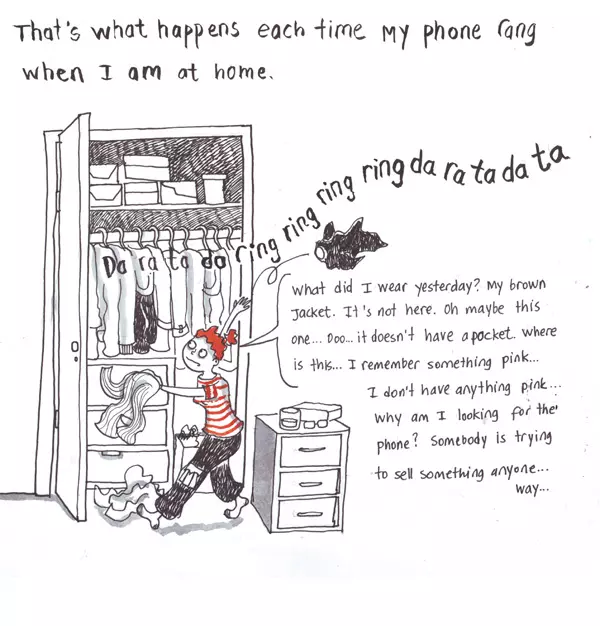 That's what happens each time my phone rang
when I am at home.
Da ra ta da ring ring ring ring da ra ta da ta
What did I wear yesterday? My brown
Jacket. It's not here. Oh maybe this
one... Doo... it doesn't have a pocket. Where
is this... I remember something pink...
I don't have anything pink...
Why am I looking for the
phone? Somebody is trying
to sell something anyone...
way...